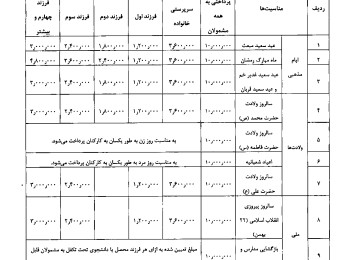 ردیف	مناسبت‌ها	پرداختی به همه مشمولان	سرپرستی خانواده	فرزند اول	فرزند دوم	فرزند سوم	فرزند چهارم و بیشتر
ایام مذهبی
۱	عید سعید مبعث	۱۰٫۰۰۰٫۰۰۰	۳٫۶۰۰٫۰۰۰	۱٫۲۰۰٫۰۰۰	۱٫۸۰۰٫۰۰۰	۲٫۴۰۰٫۰۰۰	۳٫۰۰۰٫۰۰۰
۲	ماه مبارک رمضان	۱۰٫۰۰۰٫۰۰۰	۳٫۶۰۰٫۰۰۰	۱٫۲۰۰٫۰۰۰	۲٫۴۰۰٫۰۰۰	۳٫۶۰۰٫۰۰۰	۴٫۸۰۰٫۰۰۰
۳	عید سعید غدیر خم و عید سعید قربان	۱۰٫۰۰۰٫۰۰۰	۳٫۶۰۰٫۰۰۰	۱٫۲۰۰٫۰۰۰	۱٫۸۰۰٫۰۰۰	۲٫۴۰۰٫۰۰۰	۳٫۰۰۰٫۰۰۰
ولادت‌ها
۴	سالروز ولادت حضرت محمد (ص)	۱۰٫۰۰۰٫۰۰۰	۳٫۶۰۰٫۰۰۰	۱٫۲۰۰٫۰۰۰	۱٫۸۰۰٫۰۰۰	۲٫۴۰۰٫۰۰۰	۳٫۰۰۰٫۰۰۰
۵	سالروز ولادت حضرت فاطمه (س)	۱۰٫۰۰۰٫۰۰۰	به مناسبت روز زن به طور یکسان به کارکنان پرداخت می‌شود.
۶	اعیاد شعبانیه	۱۰٫۰۰۰٫۰۰۰	به مناسبت روز مرد به طور یکسان به کارکنان پرداخت می‌شود.
۷	سالروز ولادت حضرت علی (ع)	۱۰٫۰۰۰٫۰۰۰	۳٫۶۰۰٫۰۰۰	۱٫۲۰۰٫۰۰۰	۱٫۸۰۰٫۰۰۰	۲٫۴۰۰٫۰۰۰	۳٫۰۰۰٫۰۰۰
ملی
۸	سالروز پیروزی انقلاب اسلامی (۲۲ بهمن)	۱۰٫۰۰۰٫۰۰۰	۳٫۶۰۰٫۰۰۰	۱٫۲۰۰٫۰۰۰	۱٫۸۰۰٫۰۰۰	۲٫۴۰۰٫۰۰۰	۳٫۰۰۰٫۰۰۰
۹	بازگشایی مدارس و	۱۰٫۰۰۰٫۰۰۰	مبلغ تعیین شده به ازای هر فرزند محصل یا دانشجوی تحت تکفل به مشمولان قابل